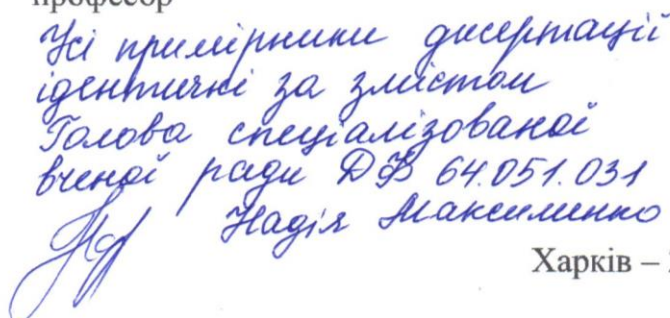 професор
Усі примірники дисертації
ідентичні за змістом
Голова спеціалізованої
вченої ради ДФ 64.051.031
Надія Максименко
Харків –